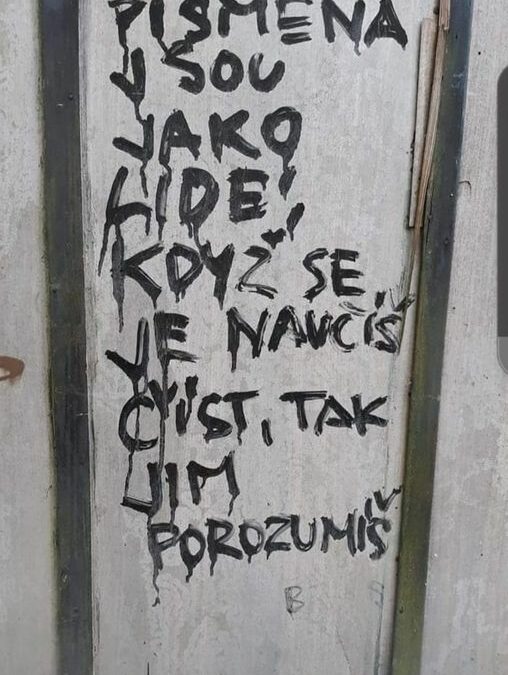 PÍSMENA
JSOU
JAKO
LIDÉ,
KDYŽ SE
JE NAUČÍŠ
ČÍST, TAK
JIM
POROZUMÍŠ
B